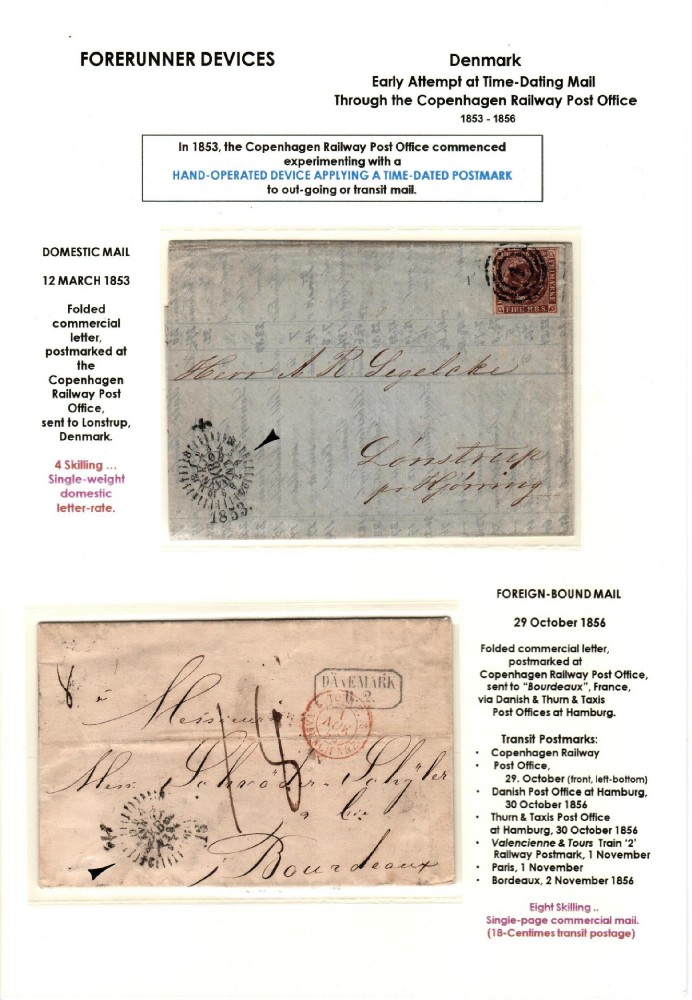 FORERUNNER DEVICES
Denmark
Early Attempt at Time-Dating Mail
Through the Copenhagen Railway Post Office
1853 - 1856
In 1853, the Copenhagen Railway Post Office commenced
experimenting with a
HAND-OPERATED DEVICE APPLYING A TIME-DATED POSTMARK
to out-going or transit mail.
DOMESTIC MAIL
12 MARCH 1853
Folded
commercial
letter,
postmarked at
the
Copenhagen
Railway Post
Office,
sent to Lonstrup,
Denmark.
4 Skilling ...
Single-weight
domestic
letter-rate.
FIRE R.B.S.
Herr A R Segelcke
Lönstrup
pr Hjörring
1853.
FOREIGN-BOUND MAIL
29 October 1856
Folded commercial letter,
postmarked at
Copenhagen Railway Post Office,
sent to "Bourdeaux", France,
via Danish & Thurn & Taxis
Post Offices at Hamburg.
Transit Postmarks:
• Copenhagen Railway
• Post Office,
29. October (front, left-bottom)
• Danish Post Office at Hamburg,
30 October 1856
• Thurn & Taxis Post Office
at Hamburg, 30 October 1856
• Valencienne & Tours Train '2'
Railway Postmark, 1 November
• Paris, 1 November
• Bordeaux, 2 November 1856
Eight Skilling ..
Single-page commercial mail.
(18-Centimes transit postage)
DÄNEMARK
R. 2.
Messieurs
Schröder
Schÿler
Bourdeaux